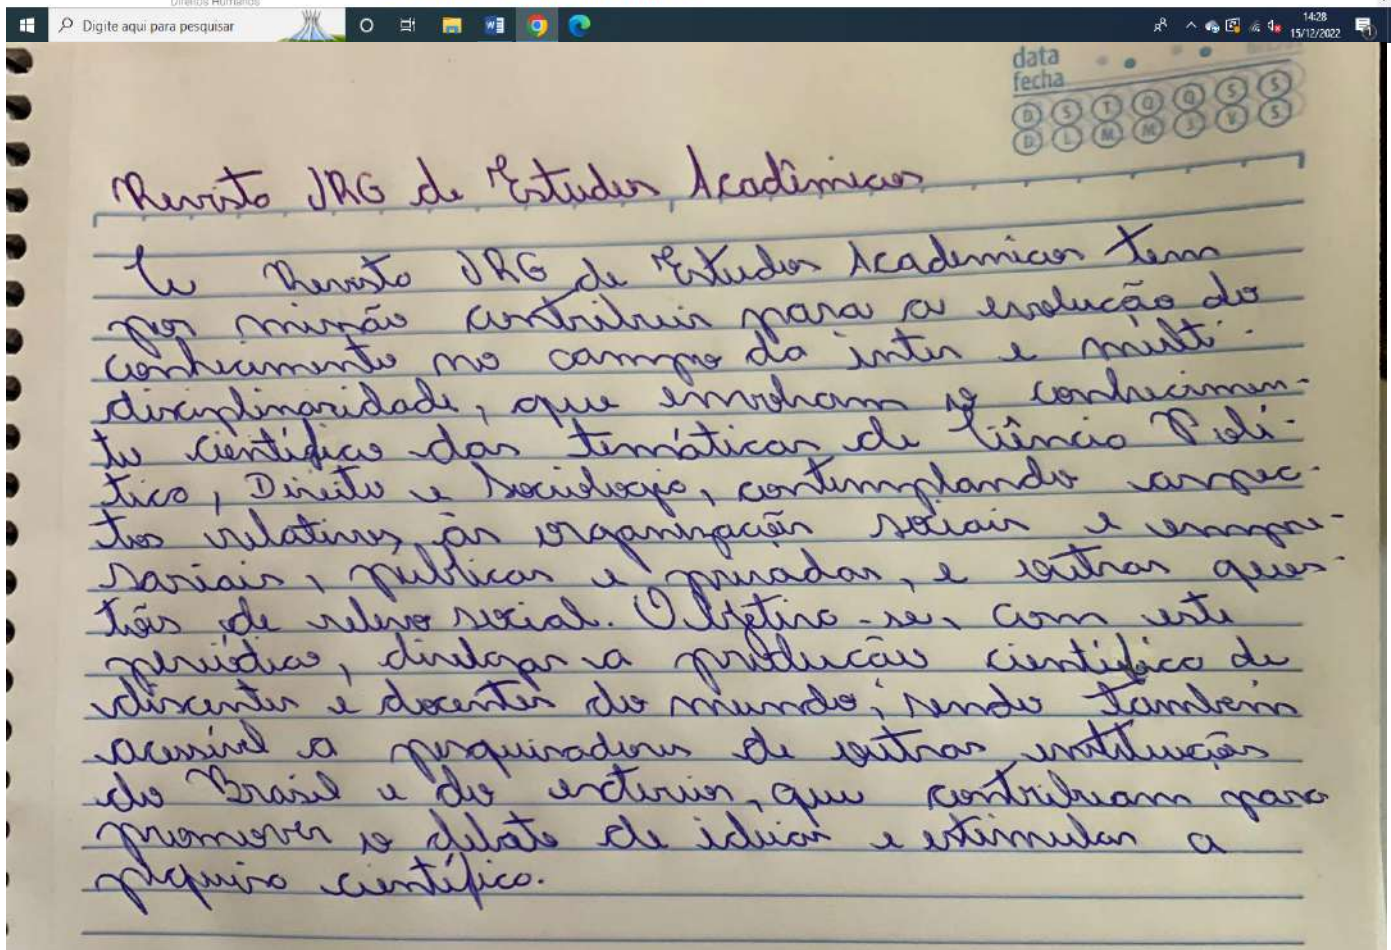 Direitos Humanos
Digite aqui para pesquisar
14:28
15/12/2022
data
fecha
D S T Q Q S S
D L M M J V S
Revista JRG de Estudos Acadêmicos
A Revista JRG de Estudos Academicos tem
por missão contribuir para a evolução do
conhecimento no campo da inter e multi-
disciplinaridade, que envolvam o conhecimen-
to científico das temáticas de Ciência Polí-
tica, Direito e Sociologia, contemplando aspec-
tos relativos às organizações sociais e empre-
sariais, publicas e privadas, e outras ques-
tões de relevo social. Objetiva-se, com este
periódico, divulgar a produção científica de
discentes e docentes do mundo, sendo também
acessível a pesquisadores de outras instituições
do Brasil e do exterior, que contribuam para
promover o debate de ideias e estimular a
pesquisa científica.